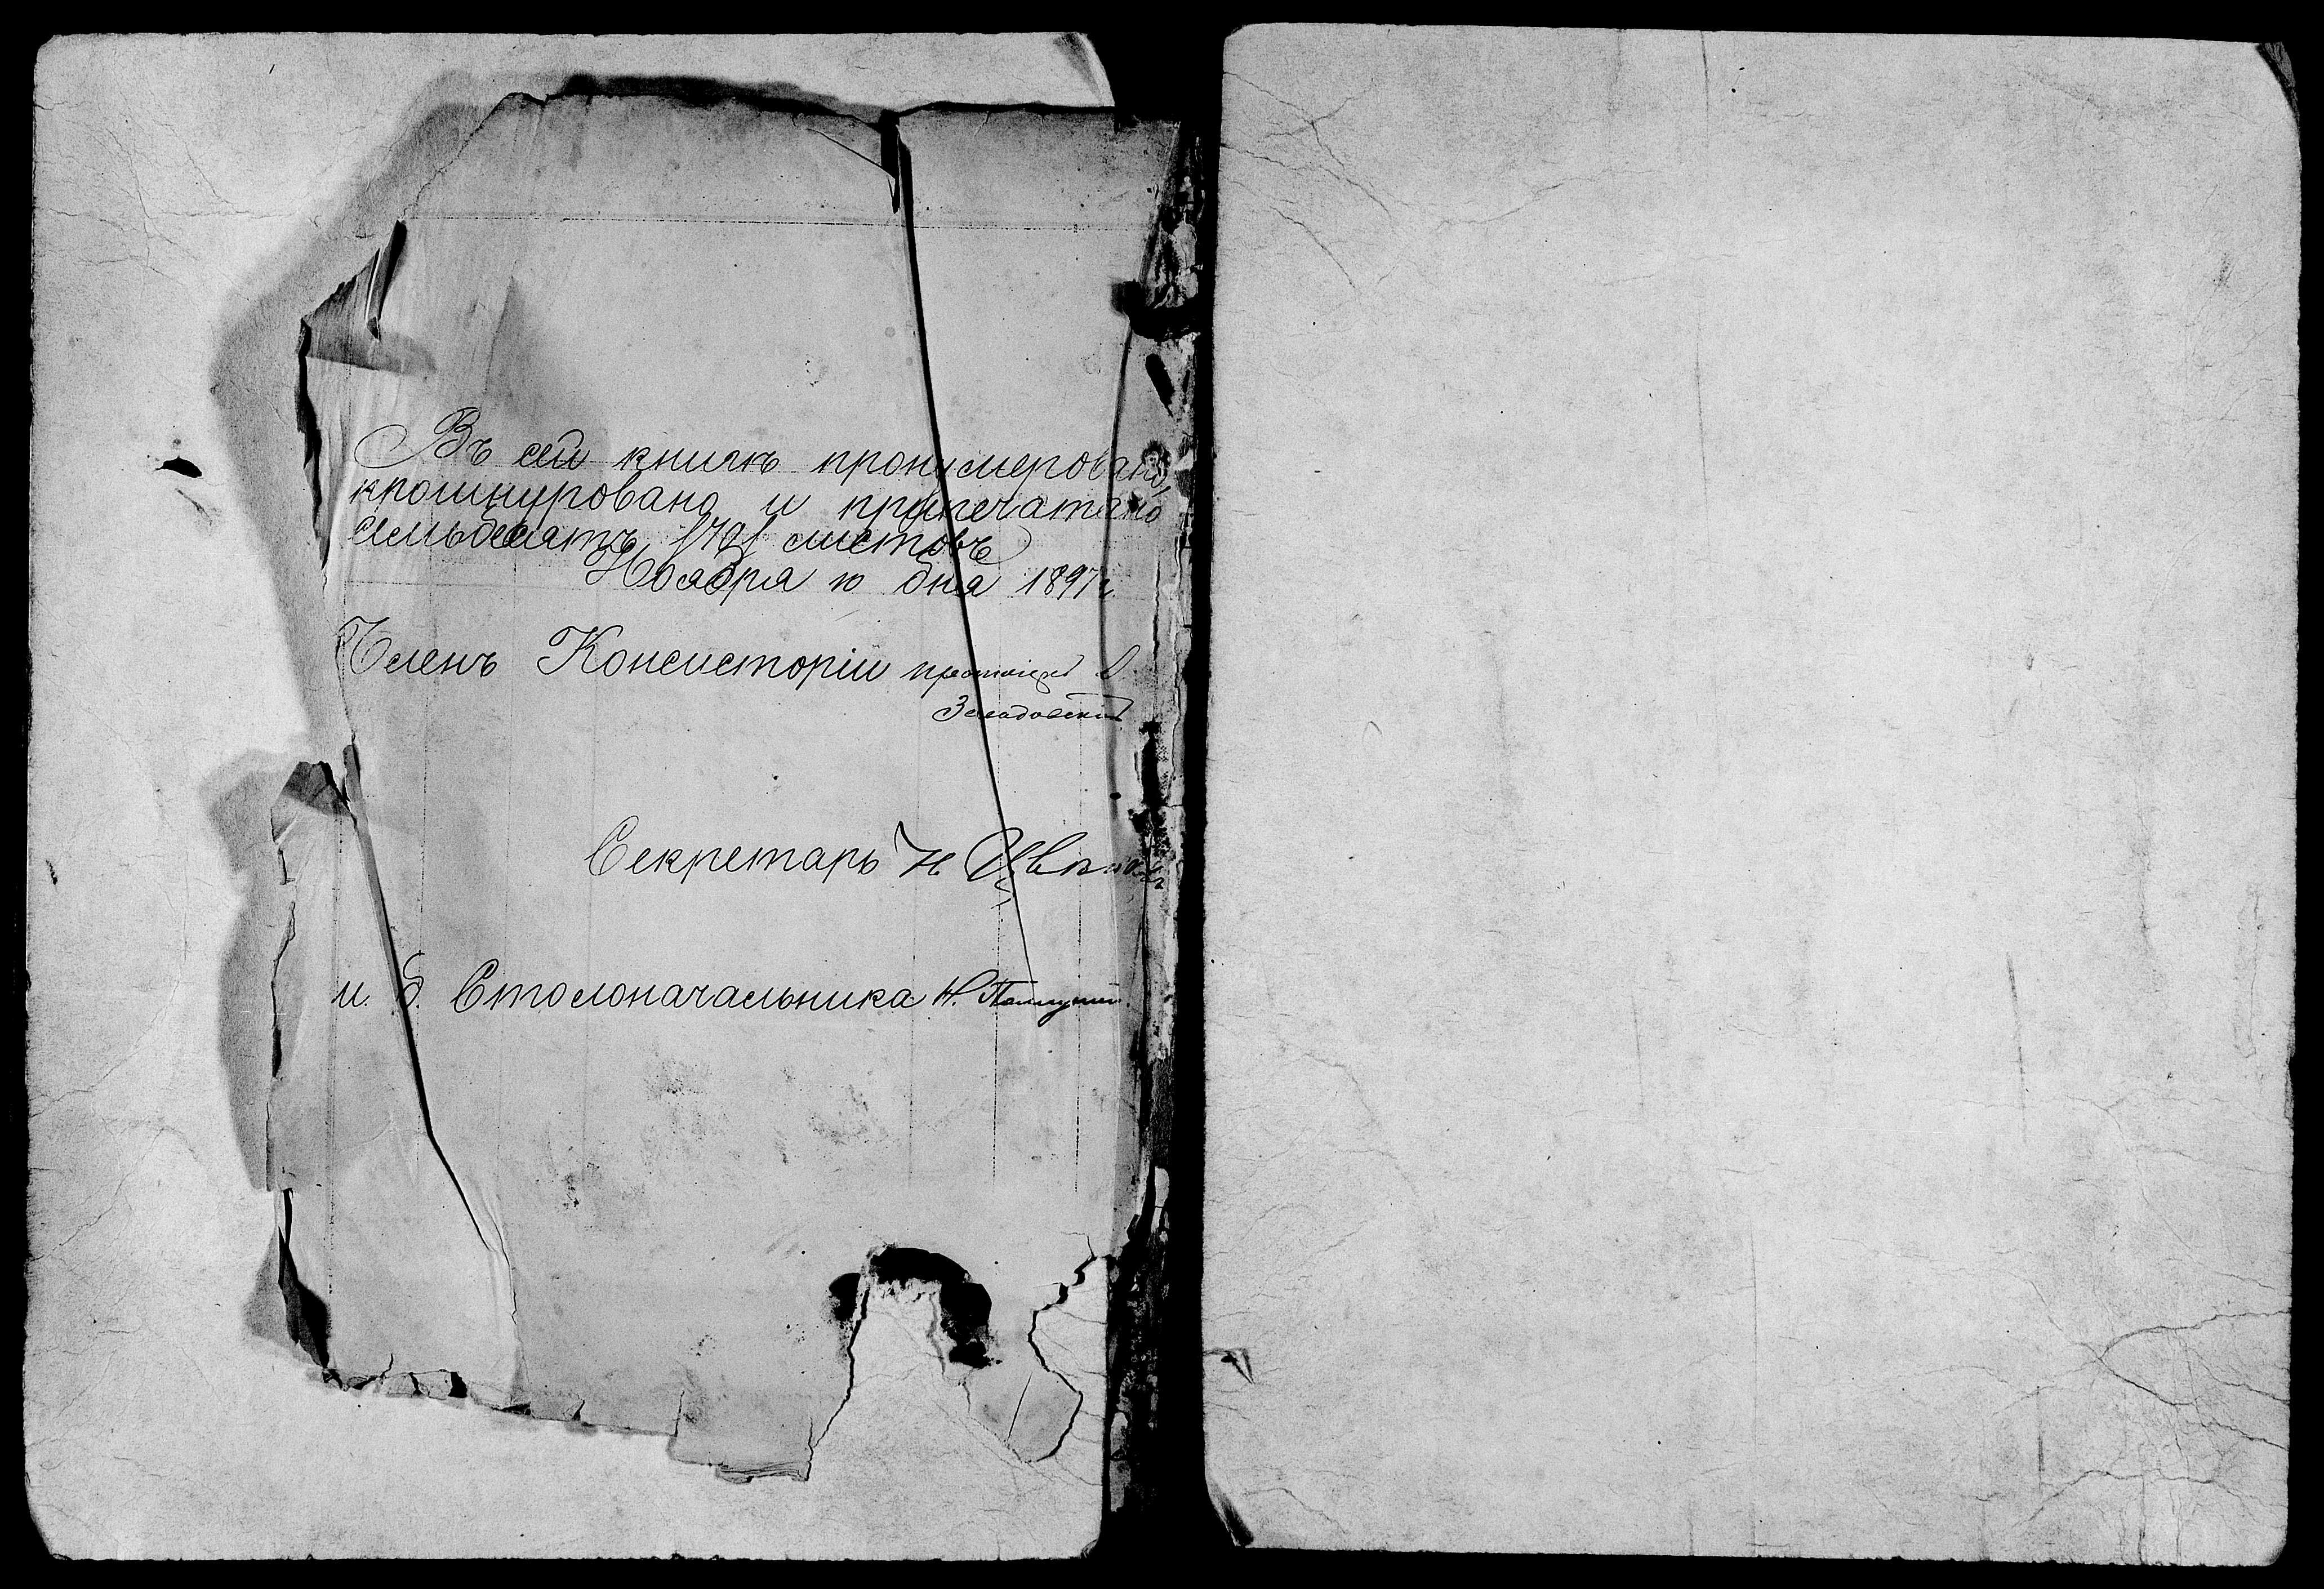 Въ сей книгѣ пронумеровано,
прошнуровано и припечатано
семьдесятъ /70/ листовъ
Ноября 10 дня 1897 г.
Членъ Консисторіи протоіерей
Секретарь Н
и. д. Столоначальника Н.